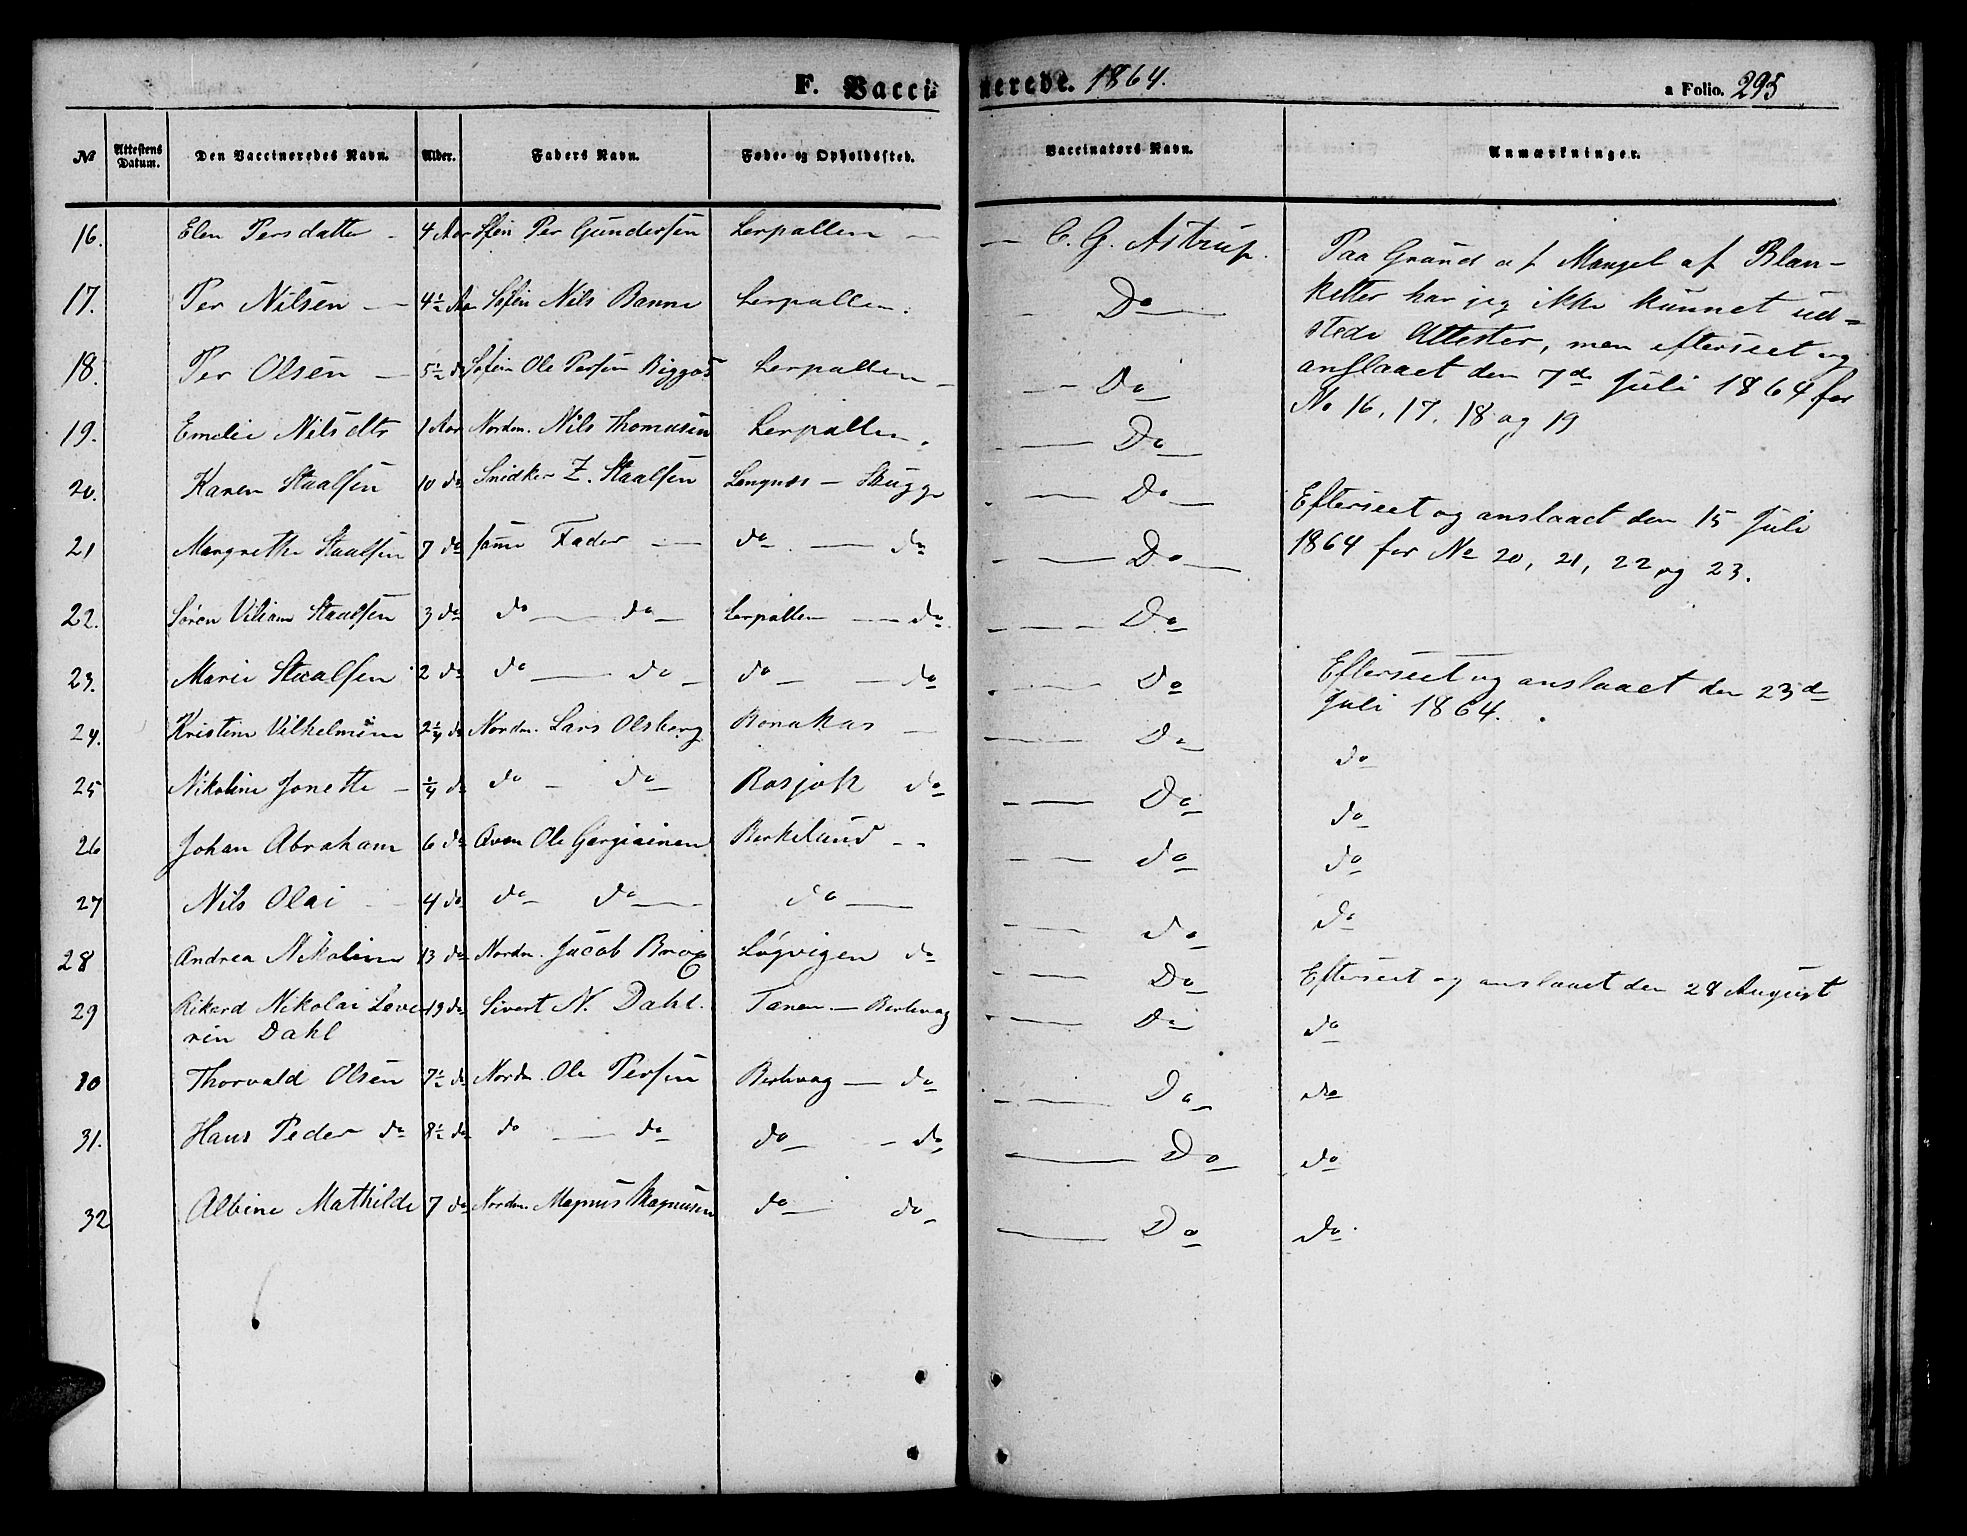 F. Vaccinerede. 1864. a Folio. 295
№ Attestens Datum. Den Vaccineredes Navn. Alder. Faders Navn. Føde- og Opholdssted. Vaccinators Navn. Anmærkninger.
16. Elen Persdatter - 4 Aar Sfin Per Gundersen Lerpollen - — C. G. Astrup.
17. Per Nilsen — 4½ Aar Søfin Nils Banne Lerpollen. - Do
18. Per Olsen — 5½ do Søfin Ole Persen Biggos Lerpollen - — Do
19. Emelie Nilsdtr 1 Aar Nordm. Nils Thomasen Lerpollen. — Do
20. Karen Staalsen 10 do Snidker Z. Staalsen Langnæs — Skugge — Do
21 Margrethe Staalsen 7 do samme Fader — do — do — Do
22. Søren Viliam Staalsen 3 do do — do Lerpollen — do — Do
23. Marie Staalsen 2 do do — do do — do — Do
24. Kristine Vilhelmine 2¼ do Nordm. Lars Olsberg Bonakas — — Do
25 Nikoline Jonette - ¼ do do - do Rosjok do — Do
26 Johan Abraham 6 do Qvæn Ole Gargiainen Berkelund - - — do
27 Nils Olai - 4 do do do — do — — do
28 Andrea Nikoline 13 do Nordm. Jacob Brox Løgvigen do — Do
29 Rikard Nikolai Seve- 13 do Sivert N. Dahl. Tanen — Berlevag — Do
rin Dahl
30 Thorvald Olsen 7½ do Nordm. Ole Persen Berlevag — do — Do
31. Hans Peder do 8½ do do — do do - do — Do
32 Albine Mathilde 7 do Nordm. Magnus Magnusen do — do — Do
Paa Grund af Mangel af Blan-
ketter har jeg ikke kunnet ud-
stede Attester, men efterseet og
anslaaet den 7de Juli 1864 for
No 16, 17, 18 og 19
Efterseet og anslaaet den 15 Juli
1864 for № 20, 21, 22 og 23.
Efterseet og anslaaet den 23de
Juli 1864.
do
do
do
do
Efterseet og anslaaet den 28 August
do
do
do
do